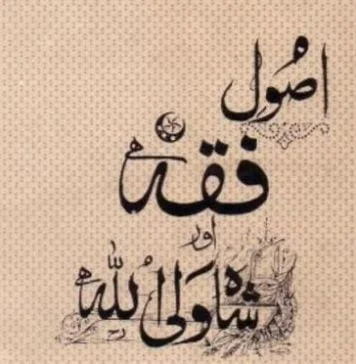 اصُول
فقہ
اور
شاہ ولی اللہؒ